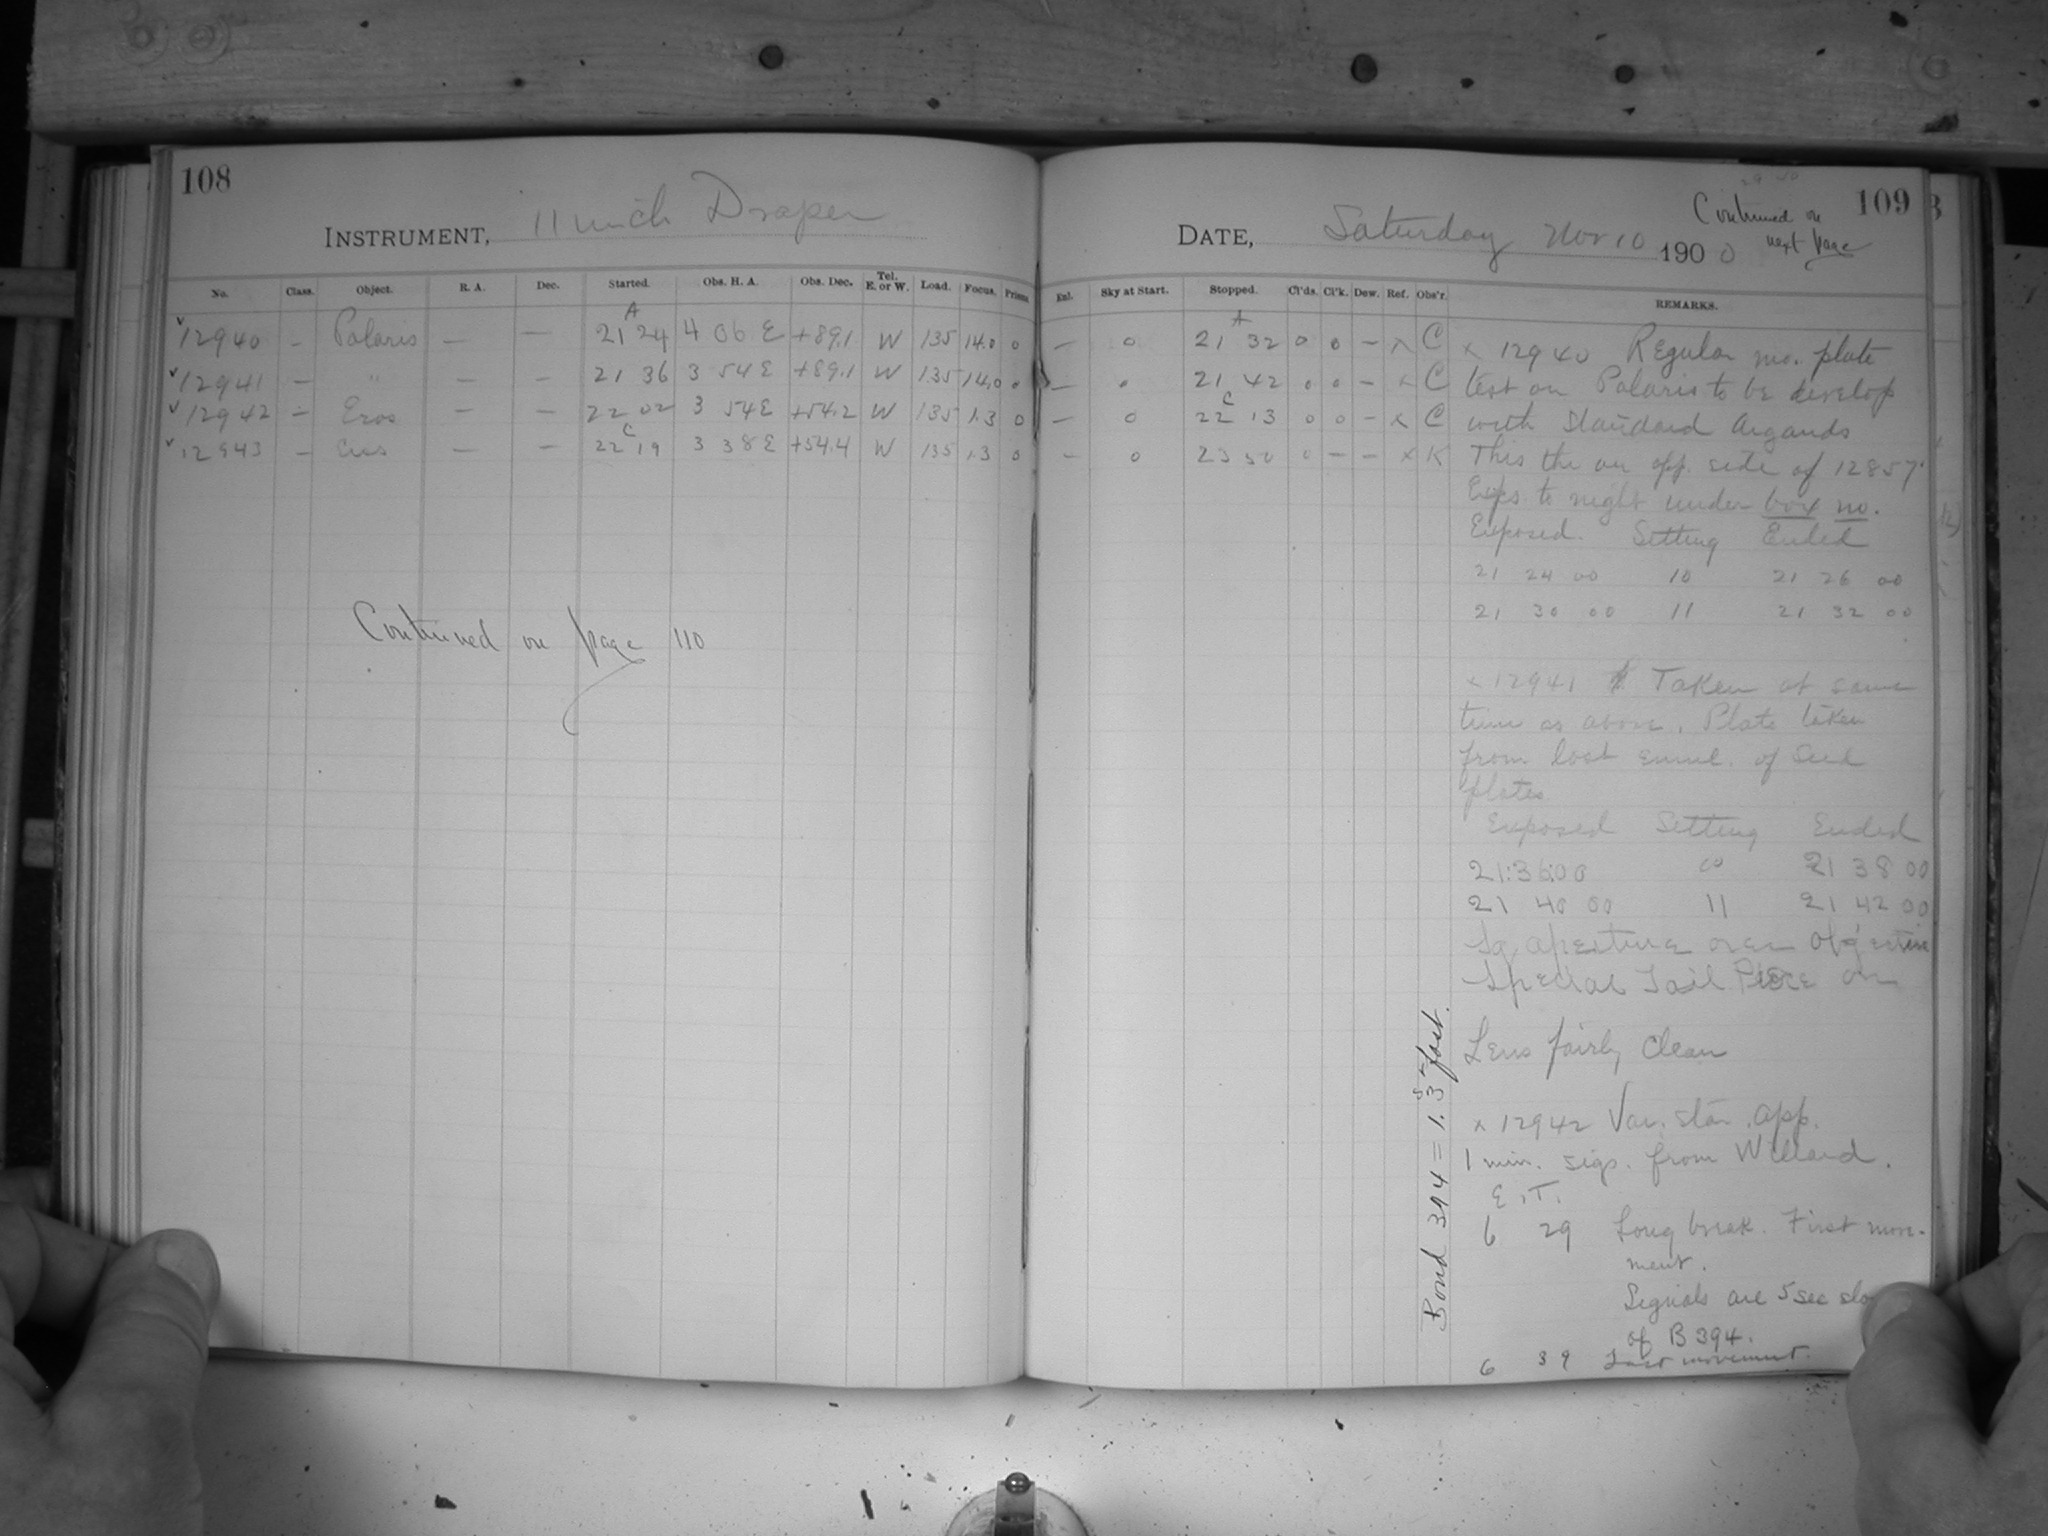 108
INSTRUMENT, 11 inch Draper
No. Class. Object. R. A. Dec. Started. Obs. H. A. Obs. Dec. Tel. E. or W. Load. Focus. Prisms
A
v 12940 – Polaris — — 21 24 4 06 E +89.1 W 135 14.0 0
v 12941 – " – – 21 36 3 54 E +89.1 W 135 14.0 0
v 12942 – Eros – – 22 02 3 54 E +54.2 W 135 1.3 0
C
v 12943 – Eros – – 22 19 3 38 E +54.4 W 135 1.3 0
Continued on page 110
109
Continued on
next page
DATE, Saturday Nov 10 1900
Exl. Sky at Start. Stopped. Cl'ds. Cl'k. Dew. Ref. Obs'r. REMARKS.
A
— 0 21 32 0 0 – x C
— 0 21 42 0 0 – x C
C
— 0 22 13 0 0 – x C
– 0 23 50 0 – – x K
x 12940 Regular mo. plate
test on Polaris to be develop
with Standard Argands
This the on opp. side of 12857.
Exps. to night under box no.
Exposed. Setting Ended
21 24 00 10 21 26 00
21 30 00 11 21 32 00
x 12941 Taken at same
time as above. Plate taken
from last emul. of Seed
plates
Exposed Setting Ended
21:36:00 10 21 38 00
21 40 00 11 21 42 00
Sq aperture over Objective
Special Tail Piece on
Lens fairly Clean
x 12942 Var. star app.
1 min. sigs. from Willard.
E.T.
6 29 Long break. First move-
ment.
Signals are 5 sec slo
of B 394.
6 39 Last movement.
Bond 394 = 1.3 s fast.